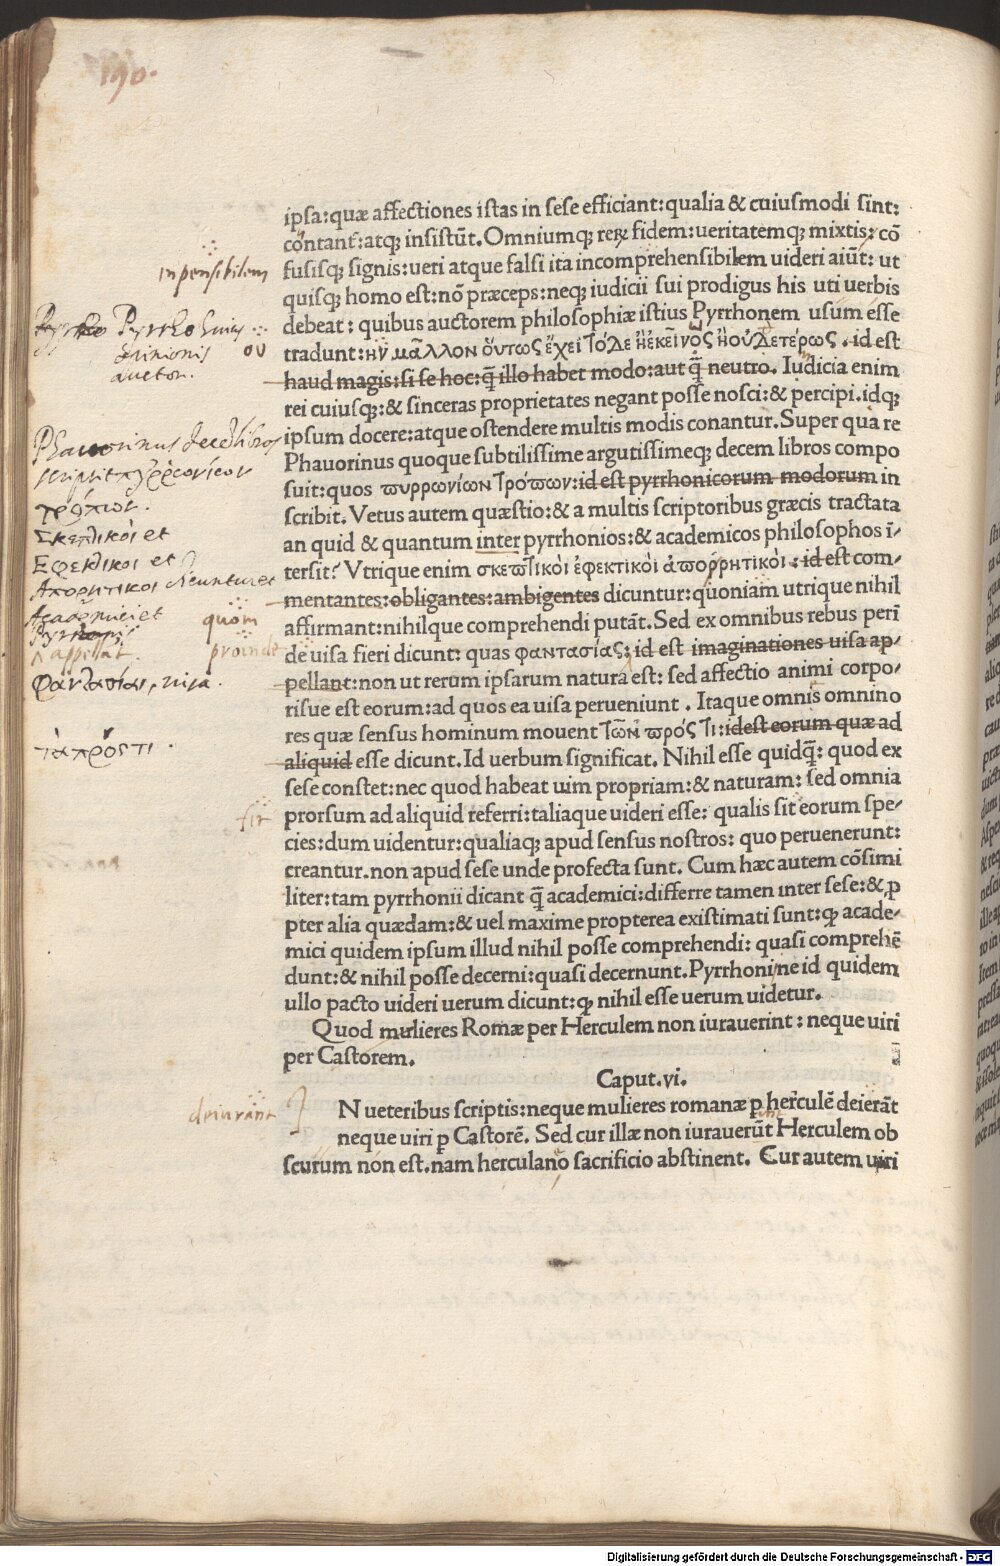 190.
ipsa:quæ affectiones istas in sese efficiant:qualia & cuiusmodi sint:
contant̃:atq; insistũt. Omniumq; reꝝ fidem:ueritatemq; mixtis: cõ
fusisq; signis:ueri atque falsi ita incomprehensibilem uideri aiũt: ut
quisq; homo est:nõ præceps:neq; iudicii sui prodigus his uti uerbis
debeat: quibus auctorem philosophiæ istius Pyrrhonem usum esse
tradunt:ἡν μᾶλλον ὅυτως ἔχει τόδε ἢ ἐκεῖνος ἢ οὐδετέρως. id est
haud magis:si se hoc:q̃ illo habet modo:aut q̃ neutro. Iudicia enim
rei cuiusq;:& sinceras proprietates negant posse nosci:& percipi.idq;
ipsum docere:atque ostendere multis modis conantur. Super qua re
Phauorinus quoque subtilissime argutissimeq; decem libros compo
suit:quos πυρρωνίων τρόπων:id est pyrrhonicorum modorum in
scribit. Vetus autem quæstio:& a multis scriptoribus græcis tractata
an quid & quantum inter pyrrhonios:& academicos philosophos ĩ-
tersit? Vtrique enim σκεπτικὸι ἐφεκτικὸι ἀπορρητικὸι: id est com-
mentantes:obligantes:ambigentes dicuntur:quoniam utrique nihil
affirmant:nihilque comprehendi putãt. Sed ex omnibus rebus perĩ
de uisa fieri dicunt: quas φαντασίας: id est imaginationes uisa ap-
pellant:non ut rerum ipsarum natura est: sed affectio animi corpo-
risue est eorum:ad quos ea uisa perueniunt . Itaque omnis omnino
res quæ sensus hominum mouent τῶν πρός τι:idest eorum quæ ad
aliquid esse dicunt. Id uerbum significat. Nihil esse quidq̃: quod ex
sese constet:nec quod habeat uim propriam:& naturam: sed omnia
prorsum ad aliquid referri:taliaque uideri esse: qualis sit eorum spe-
cies:dum uidentur:qualiaq; apud sensus nostros: quo peruenerunt:
creantur.non apud sese unde profecta sunt. Cum hæc autem cõsimi
liter:tam pyrrhonii dicant q̃ academici:differre tamen inter sese:& ꝓ
pter alia quædam:& uel maxime propterea existimati sunt:ꝙ acade-
mici quidem ipsum illud nihil posse comprehendi: quasi comprehẽ
dunt:& nihil posse decerni:quasi decernunt. Pyrrhonii ne id quidem
ullo pacto uideri uerum dicunt:ꝙ nihil esse uerum uidetur.
Quod mulieres Romæ per Herculem non iurauerint: neque uiri
per Castorem.
Caput.vi.
N ueteribus scriptis:neque mulieres romanæ ꝑ herculẽ deierãt
neque uiri ꝑ Castorẽ. Sed cur illæ non iurauerũt Herculem ob
scurum non est.nam herculano sacrificio abstinent. Cur autem uiri
inpensibilem
Pyrrho Pyrrho huius
ου
auctor.
Phauorinus decē libros
scripsit
τρόπων.
Σκεπτικοὶ et
Εφεκτικοι et
Απορητικοι dicuntur et
Academici et
quom
appellāt.
proinde
φαντασίαι, uisa.
τὰ πρός τι.
fit
deiurant
Digitalisierung gefördert durch die Deutsche Forschungsgemeinschaft - DFG